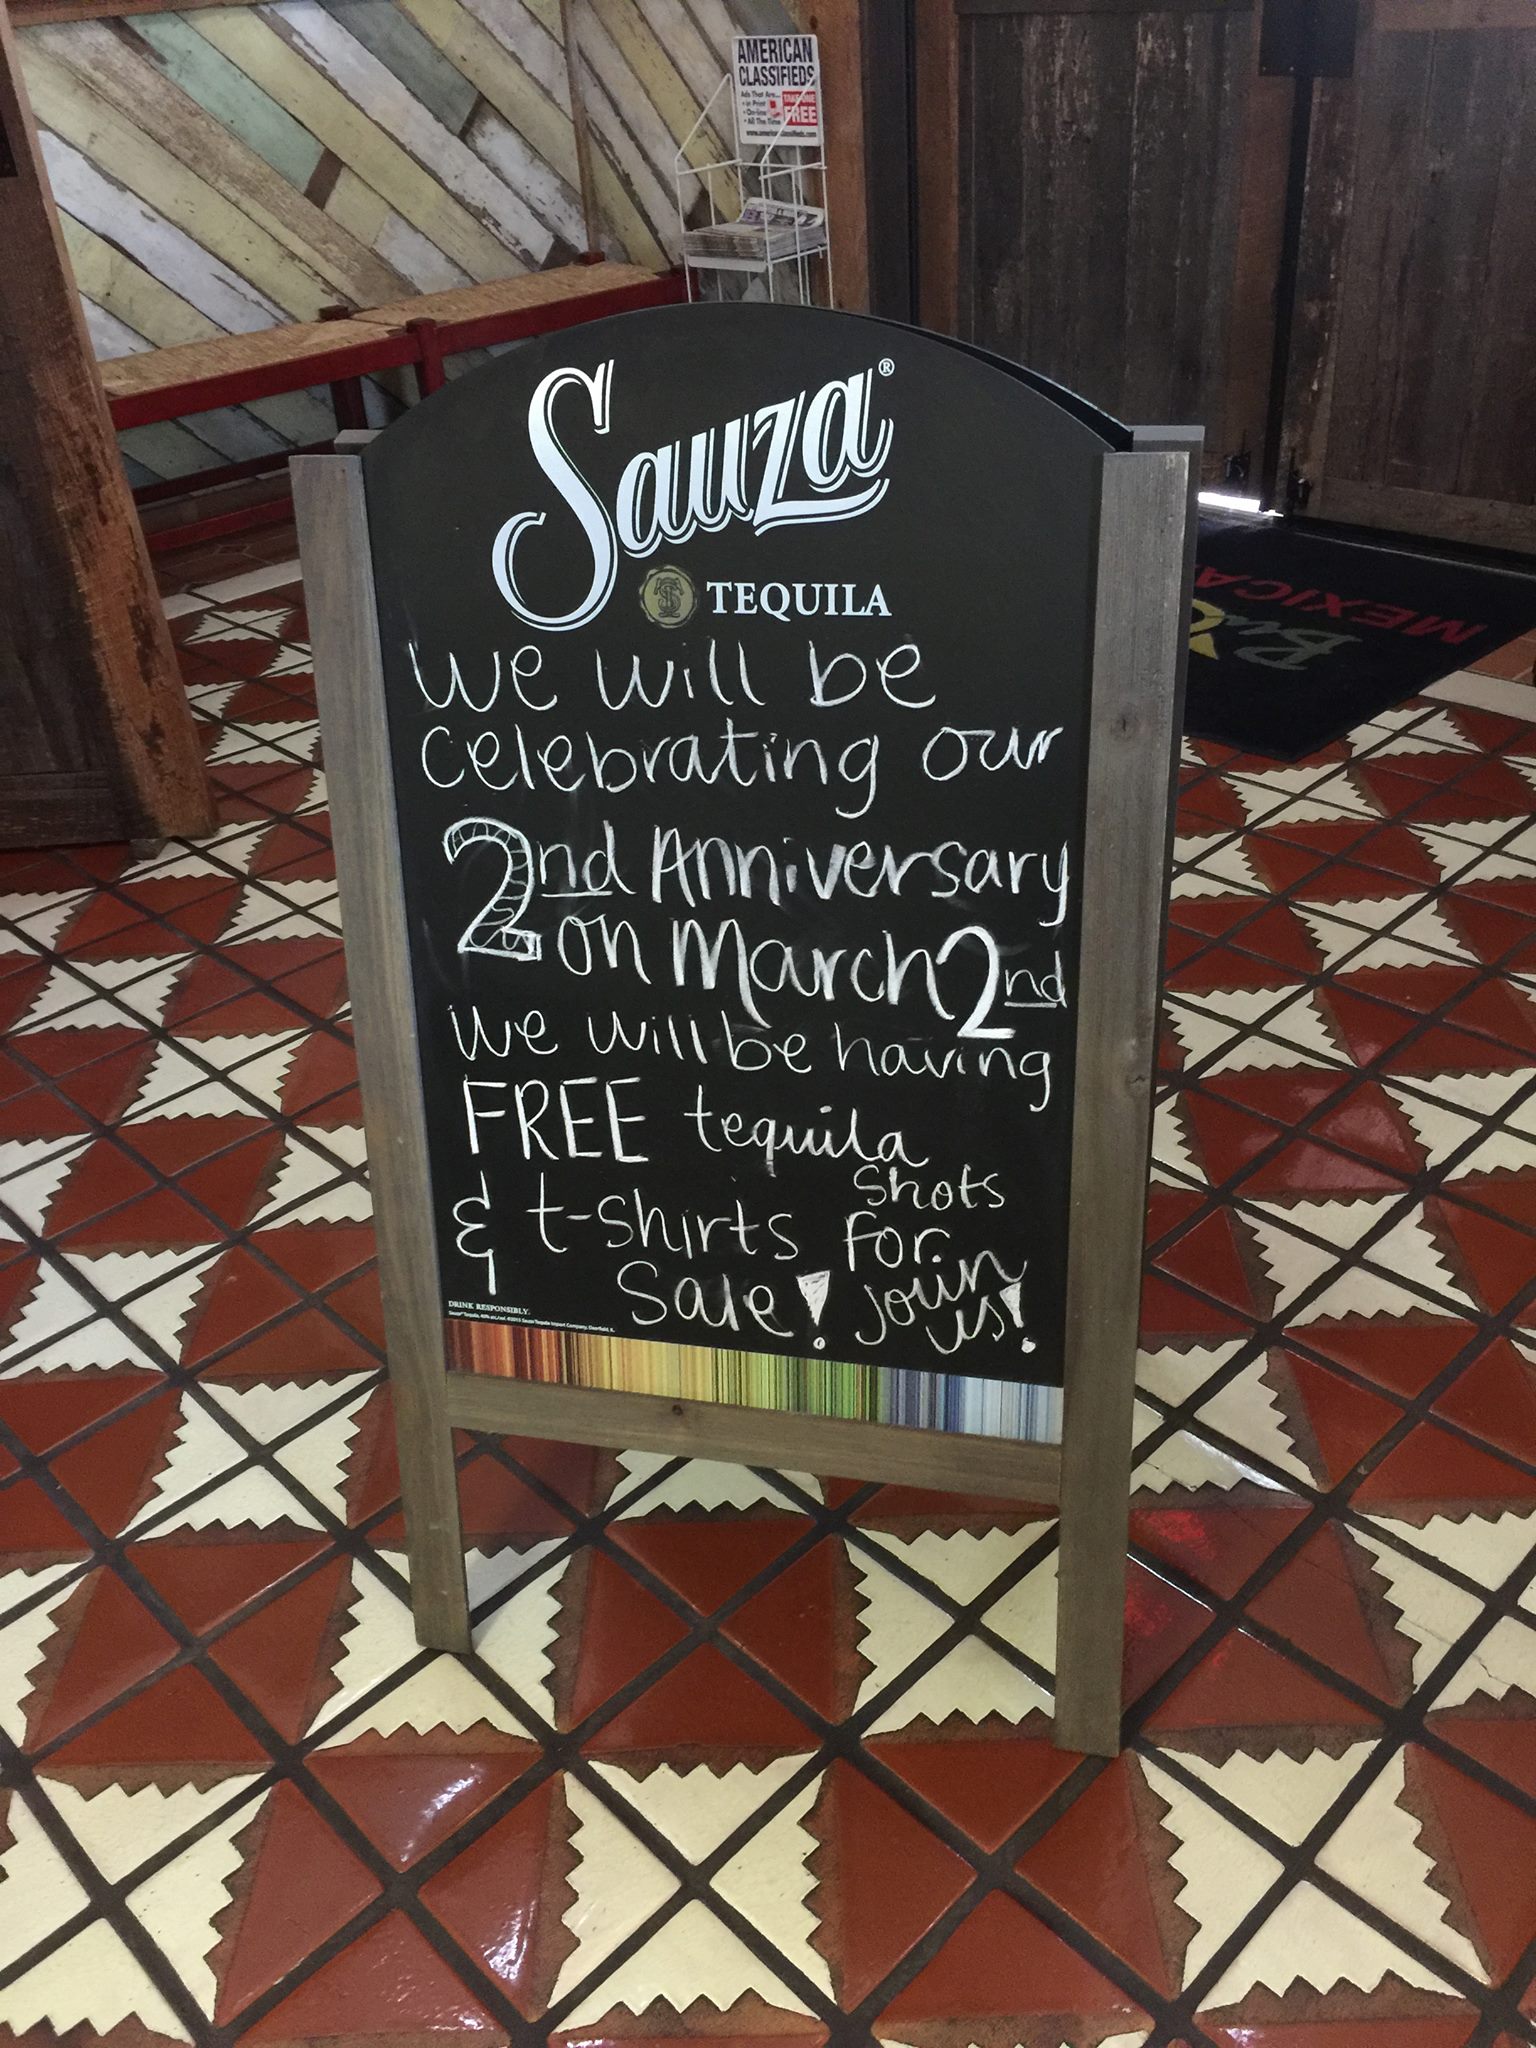 AMERICAN
CLASSIFIEDS
Ads That Are...
• in Print
• On-line
• All The Time
TAKE ONE
FREE
www.americanclassifieds.com
Sauza®
TEQUILA
We will be
celebrating our
2nd Anniversary
on March 2nd
We will be having
FREE tequila
shots
& t-shirts for
Sale! join
us!
DRINK RESPONSIBLY.
MEXICA